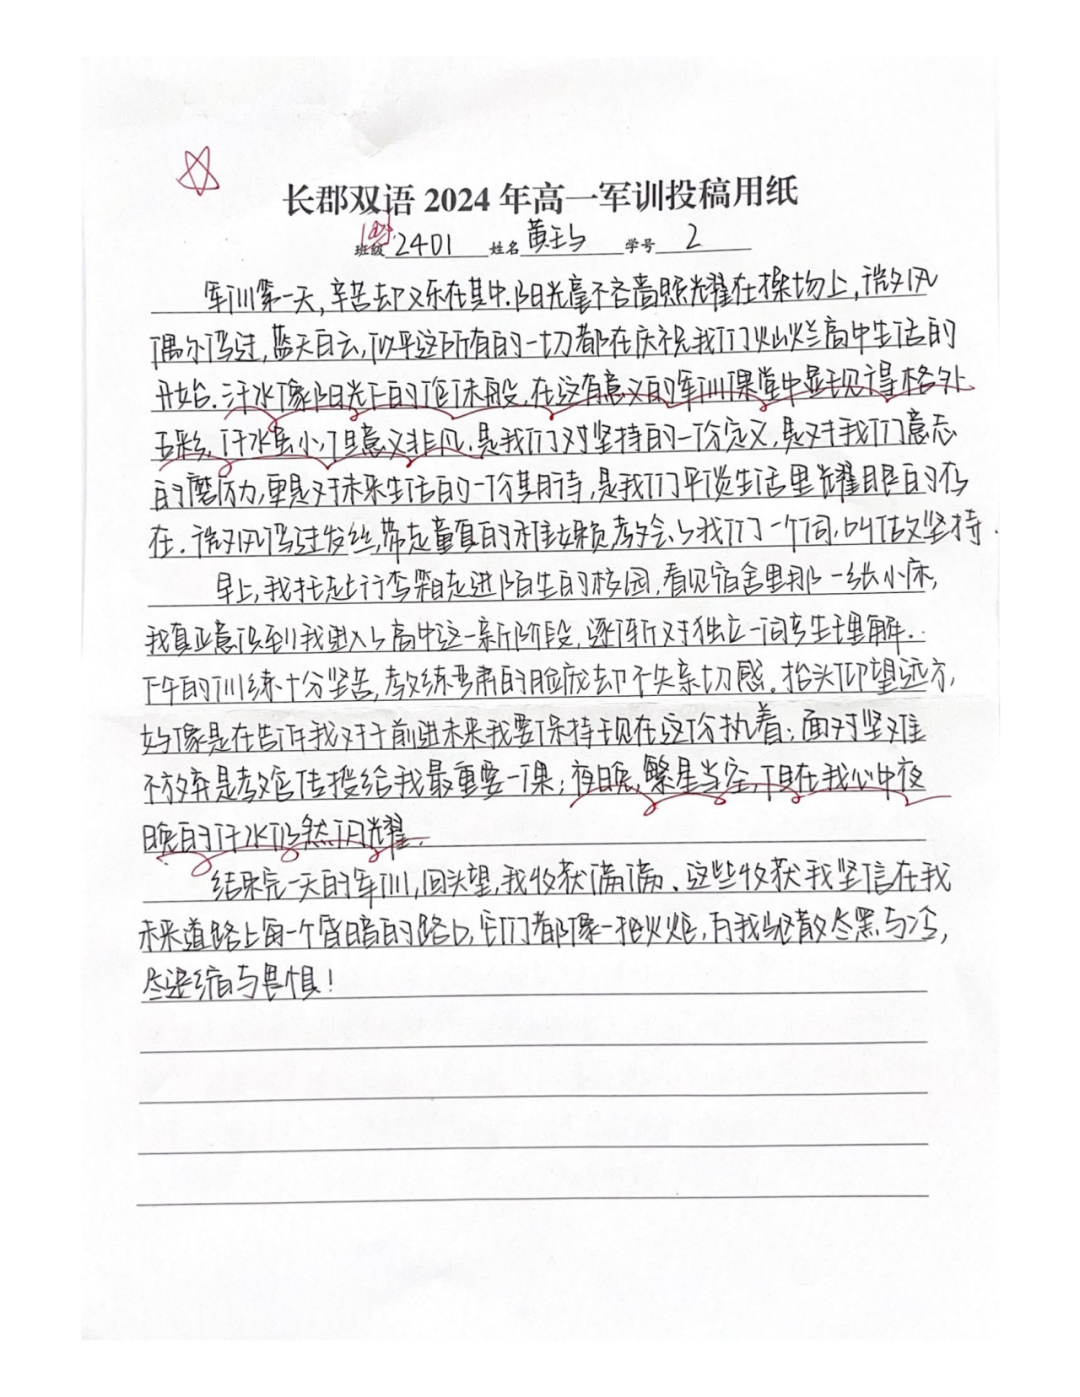 长郡双语 2024 年高一军训投稿用纸
班级 2401 姓名 黄玉 学号 2
军训第一天，辛苦却又乐在其中.阳光毫不吝啬照耀在操场上，微风
偶尔吹过，蓝天白云，似乎这所有的一切都在庆祝我们灿烂高中生活的
开始.汗水像阳光下的 ，在这有意义的军训课堂中显现得格外
五彩.汗水虽小，但意义非凡.是我们对坚持的一份定义，是对我们意志
的磨历力，更是对未来生活的一份期待，是我们平淡生活里光耀眼的存
在.微风吹过发丝，带走童真的稚嫩 ，教会与我们一个词，叫做坚持.
早上，我托起行李箱走进陌生的校园，看见宿舍里那一张小床，
我真正意识到我进入与高中这一新阶段，逐渐对独立一词产生理解.
下午的训练十分坚苦，教练严肃的脸庞却不失亲切感.抬头仰望远方，
好像是在告诉我对于前进未来我要保持现在这份执着；面对坚难
不放弃是教官传授给我最重要一课；夜晚，繁星当空，但在我心中夜
晚的汗水仍然闪耀.
结束完一天的军训，回头望，我收获满满、这些收获我坚信在我
未来道路上每一个昏暗的路口，它们都像一把火炬，为我驱散尽黑与冷，
尽退缩与畏惧！